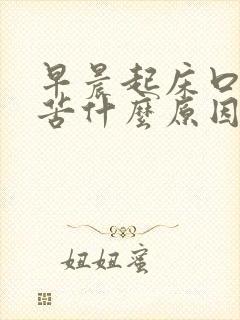 早晨起床口
苦什麼原因
妞妞蜜